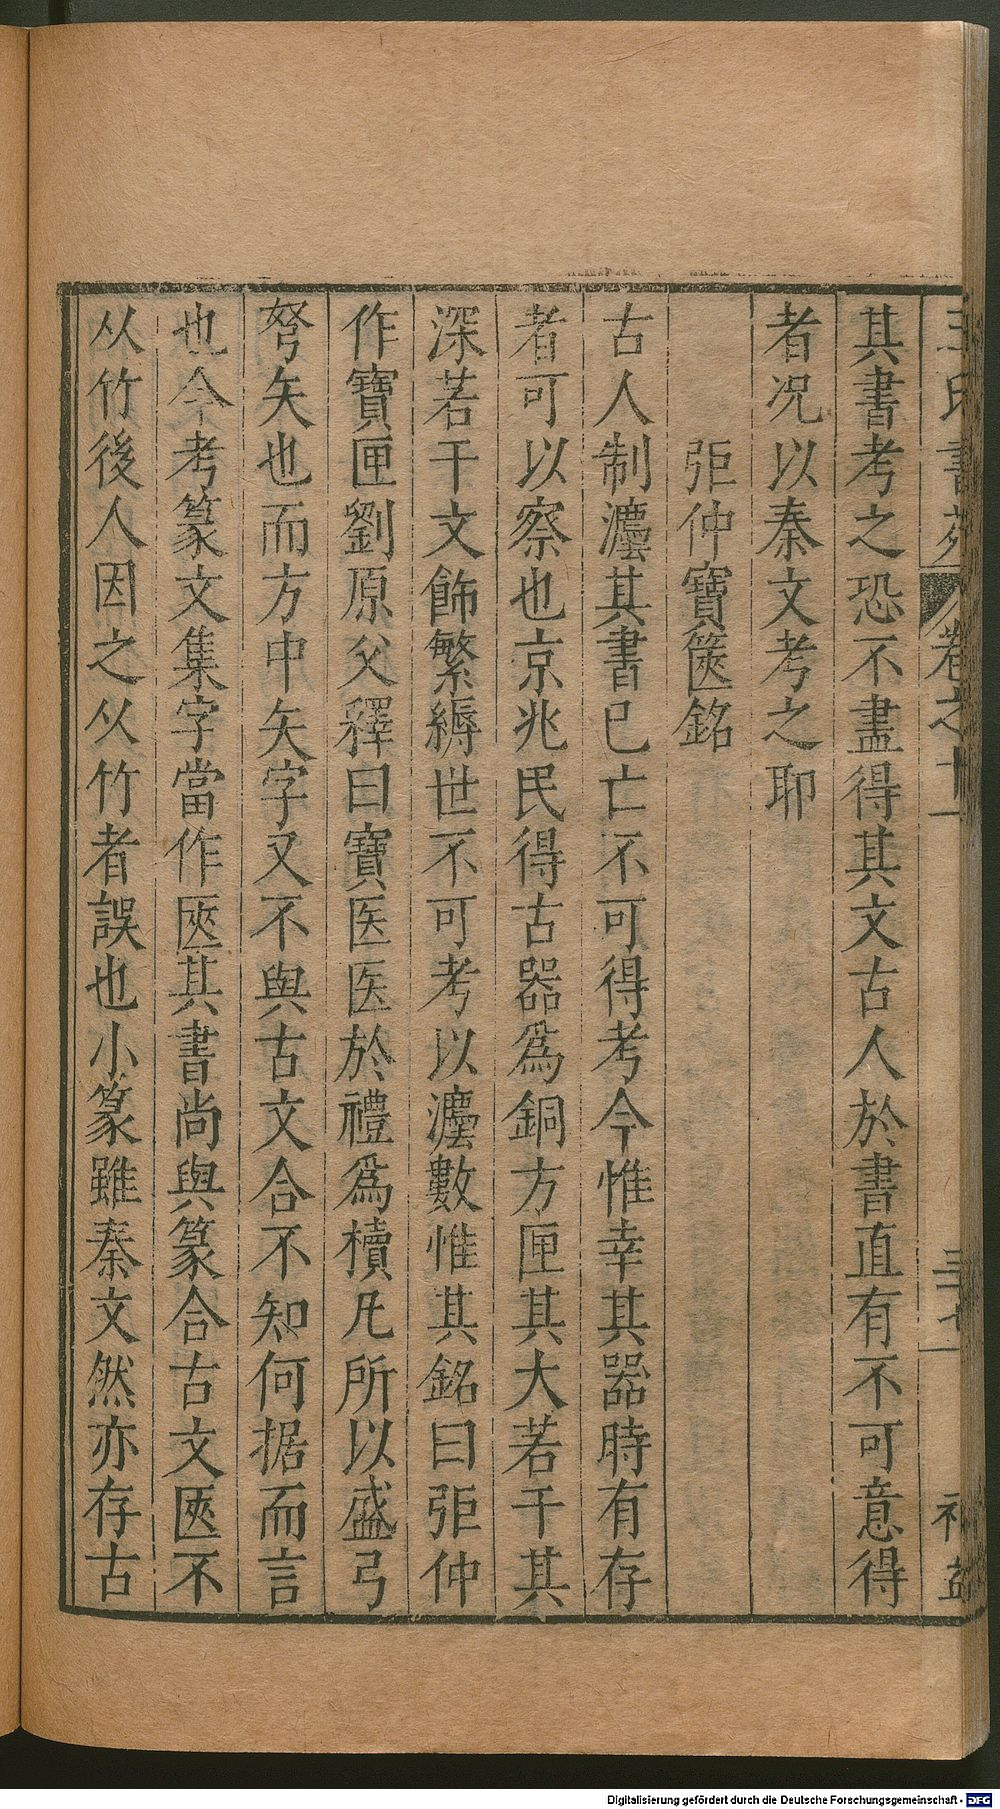 王氏書苑 卷之十一 三十七
其書考之恐不盡得其文古人於書直有不可意得
者况以秦文考之耶
弡仲寶篋銘
古人制灋其書已亡不可得考今惟幸其器時有存
者可以察也京兆民得古器爲銅方匣其大若干其
深若干文飾繁縟世不可考以灋數惟其銘曰弡仲
作寶匣劉原父釋曰寶医医於禮爲櫝凡所以盛弓
弩矢也而方中矢字又不與古文合不知何据而言
也今考篆文集字當作匧其書尚與篆合古文匧不
从竹後人因之从竹者誤也小篆雖秦文然亦存古
Digitalisierung gefördert durch die Deutsche Forschungsgemeinschaft - DFG